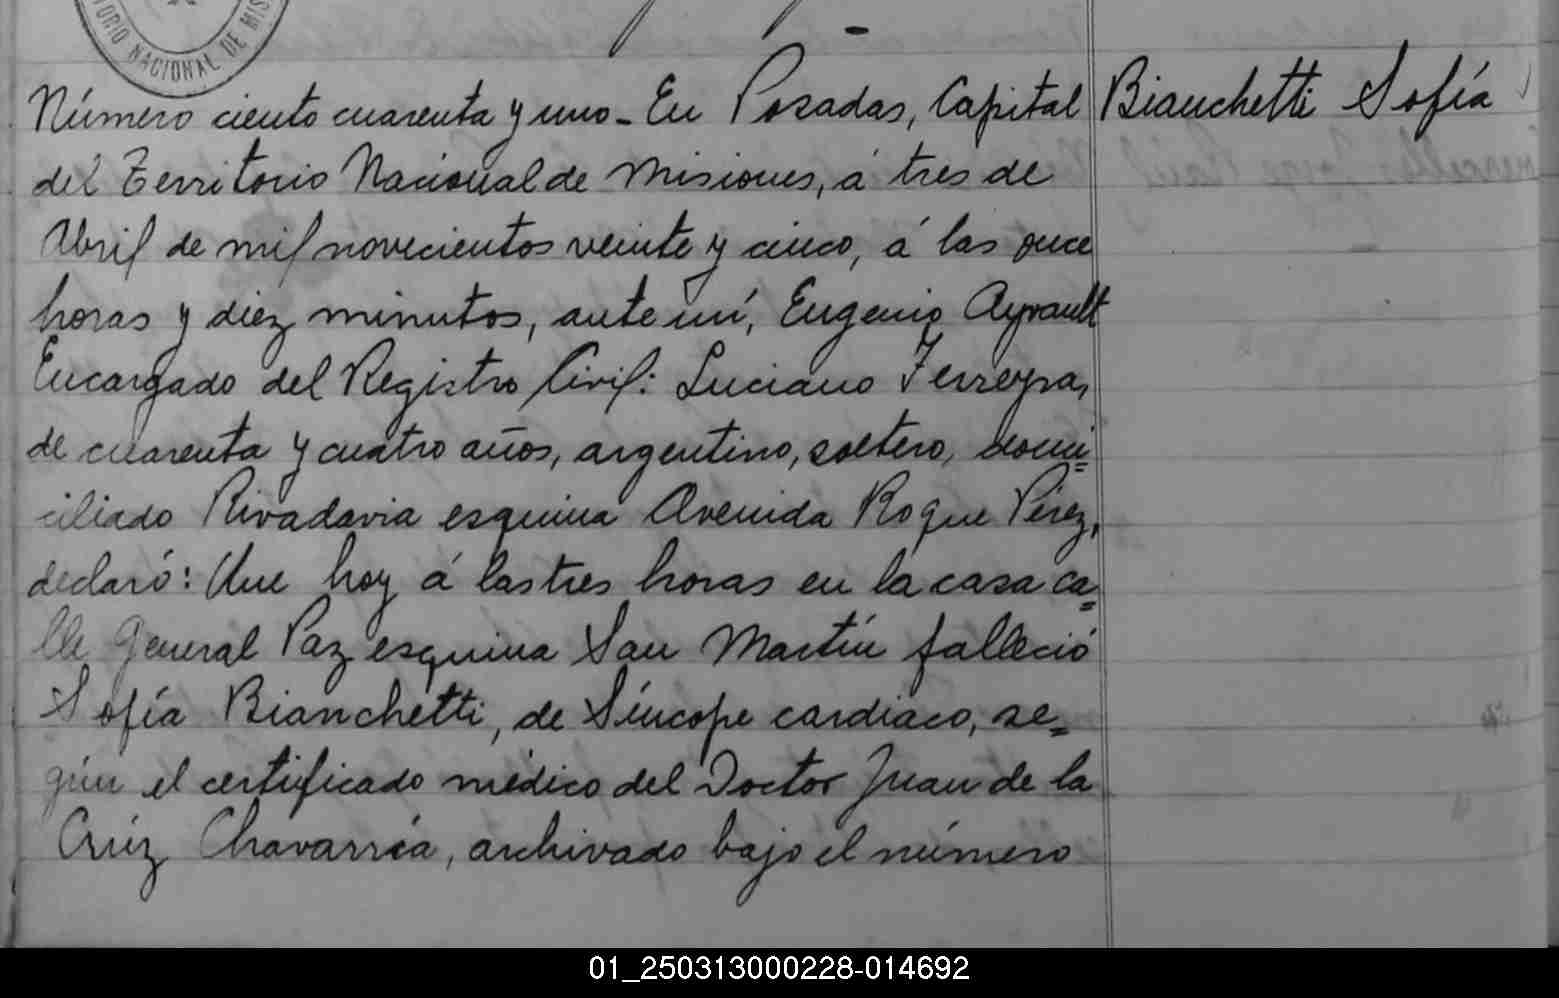 TORIO NACIONAL DE MIS
Número ciento cuarenta y uno - En Posadas, Capital
Bianchetti Sofía
del Territorio Nacional de Misiones, á tres de
Abril de mil novecientos veinte y cinco, á las once
horas y diez minutos, ante mí, Eugenio Ayrault
Encargado del Registro Civil: Luciano Ferreyra,
de cuarenta y cuatro años, argentino, soltero, domi=
ciliado Rivadavia esquina Avenida Roque Pérez,
declaró: Que hoy á las tres horas en la casa ca=
lle General Paz esquina San Martín falleció
Sofía Bianchetti, de Síncope cardiaco, se=
gún el certificado médico del Doctor Juan de la
Crúz Chavarría, archivado bajo el número
01_250313000228-014692